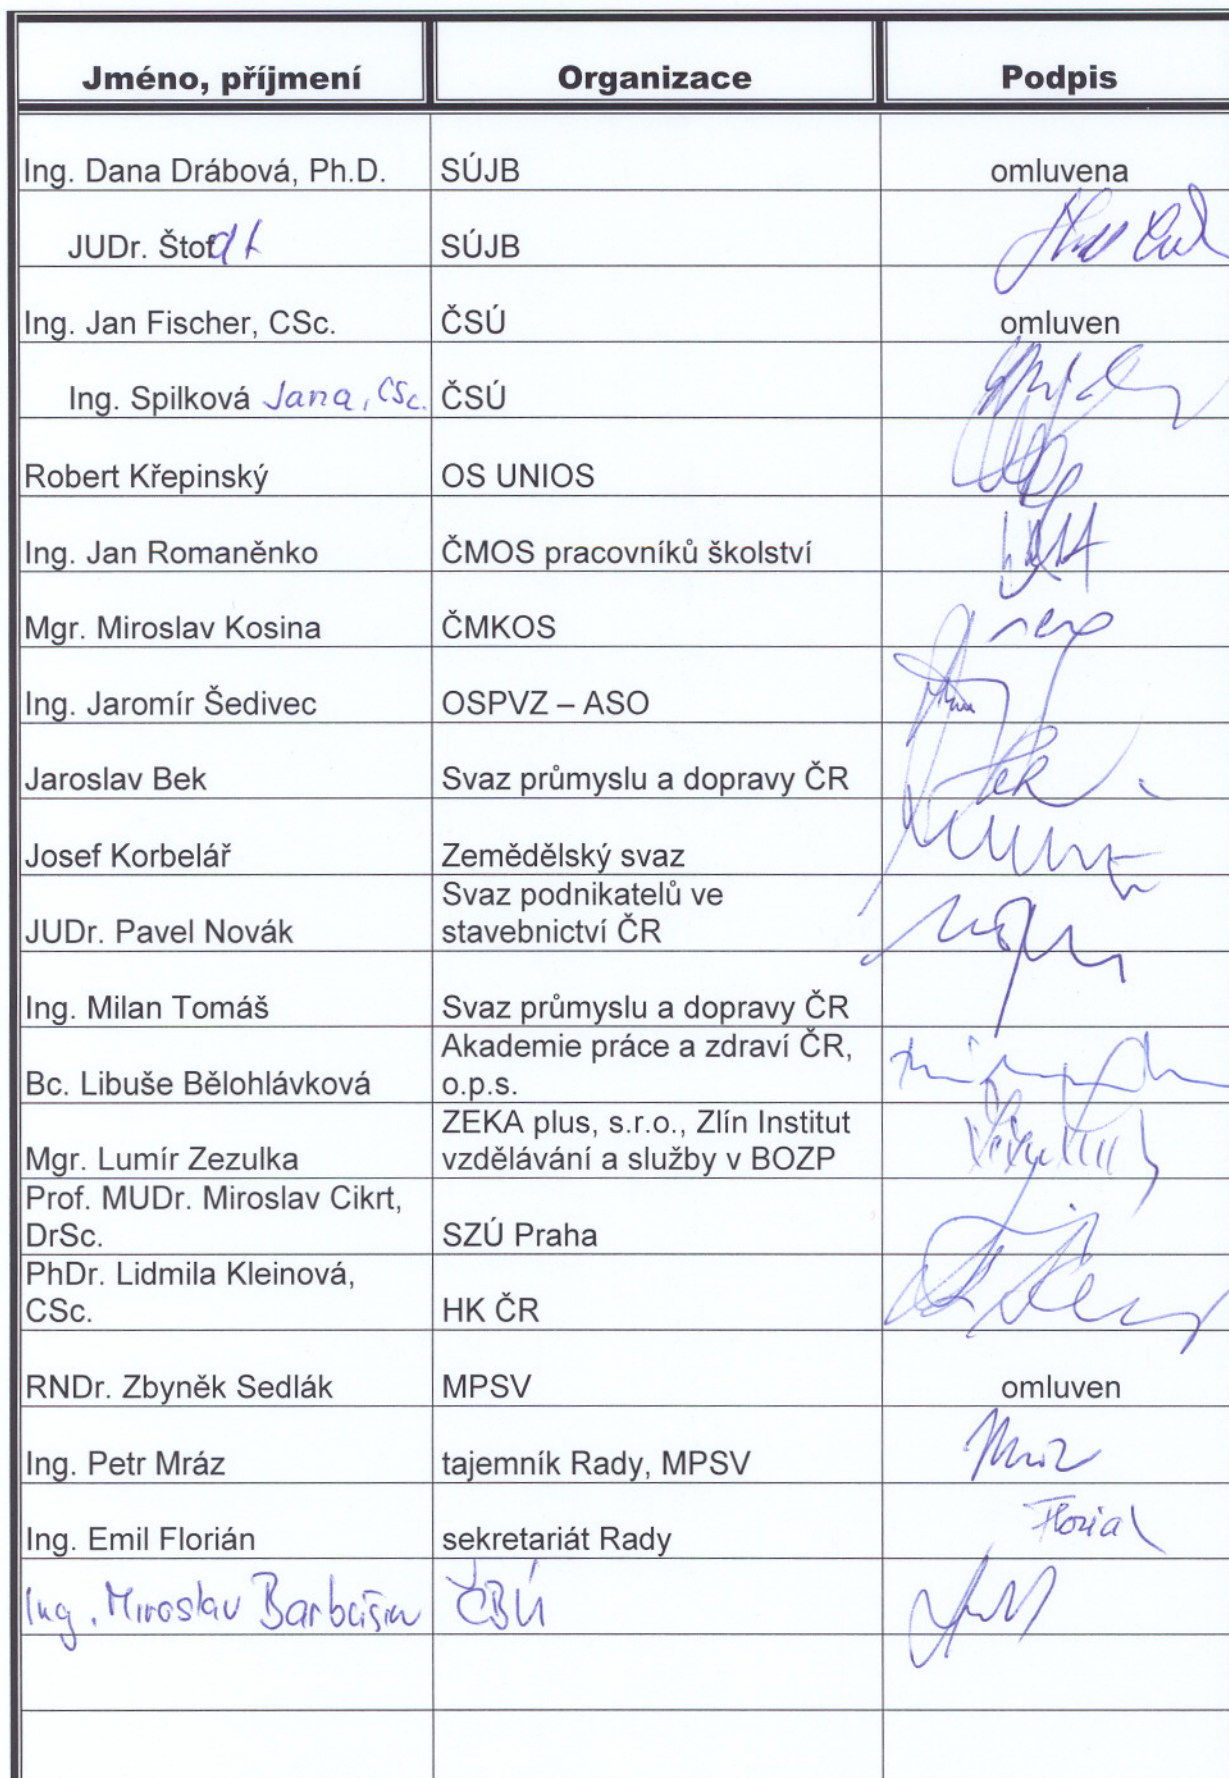 Jméno, příjmení Organizace Podpis
Ing. Dana Drábová, Ph.D. SÚJB omluvena
JUDr. Štofdt SÚJB
Ing. Jan Fischer, CSc. ČSÚ omluven
Ing. Spilková Jana, CSc. ČSÚ
Robert Křepinský OS UNIOS
Ing. Jan Romaněnko ČMOS pracovníků školství
Mgr. Miroslav Kosina ČMKOS
Ing. Jaromír Šedivec OSPVZ – ASO
Jaroslav Bek Svaz průmyslu a dopravy ČR Bek
Josef Korbelář Zemědělský svaz
Svaz podnikatelů ve
JUDr. Pavel Novák stavebnictví ČR
Ing. Milan Tomáš Svaz průmyslu a dopravy ČR
Akademie práce a zdraví ČR,
Bc. Libuše Bělohlávková o.p.s.
ZEKA plus, s.r.o., Zlín Institut
Mgr. Lumír Zezulka vzdělávání a služby v BOZP
Prof. MUDr. Miroslav Cikrt,
DrSc. SZÚ Praha
PhDr. Lidmila Kleinová,
CSc. HK ČR
RNDr. Zbyněk Sedlák MPSV omluven
Ing. Petr Mráz tajemník Rady, MPSV Mráz
Ing. Emil Florián sekretariát Rady Florián
Ing. Miroslav ČBÚ